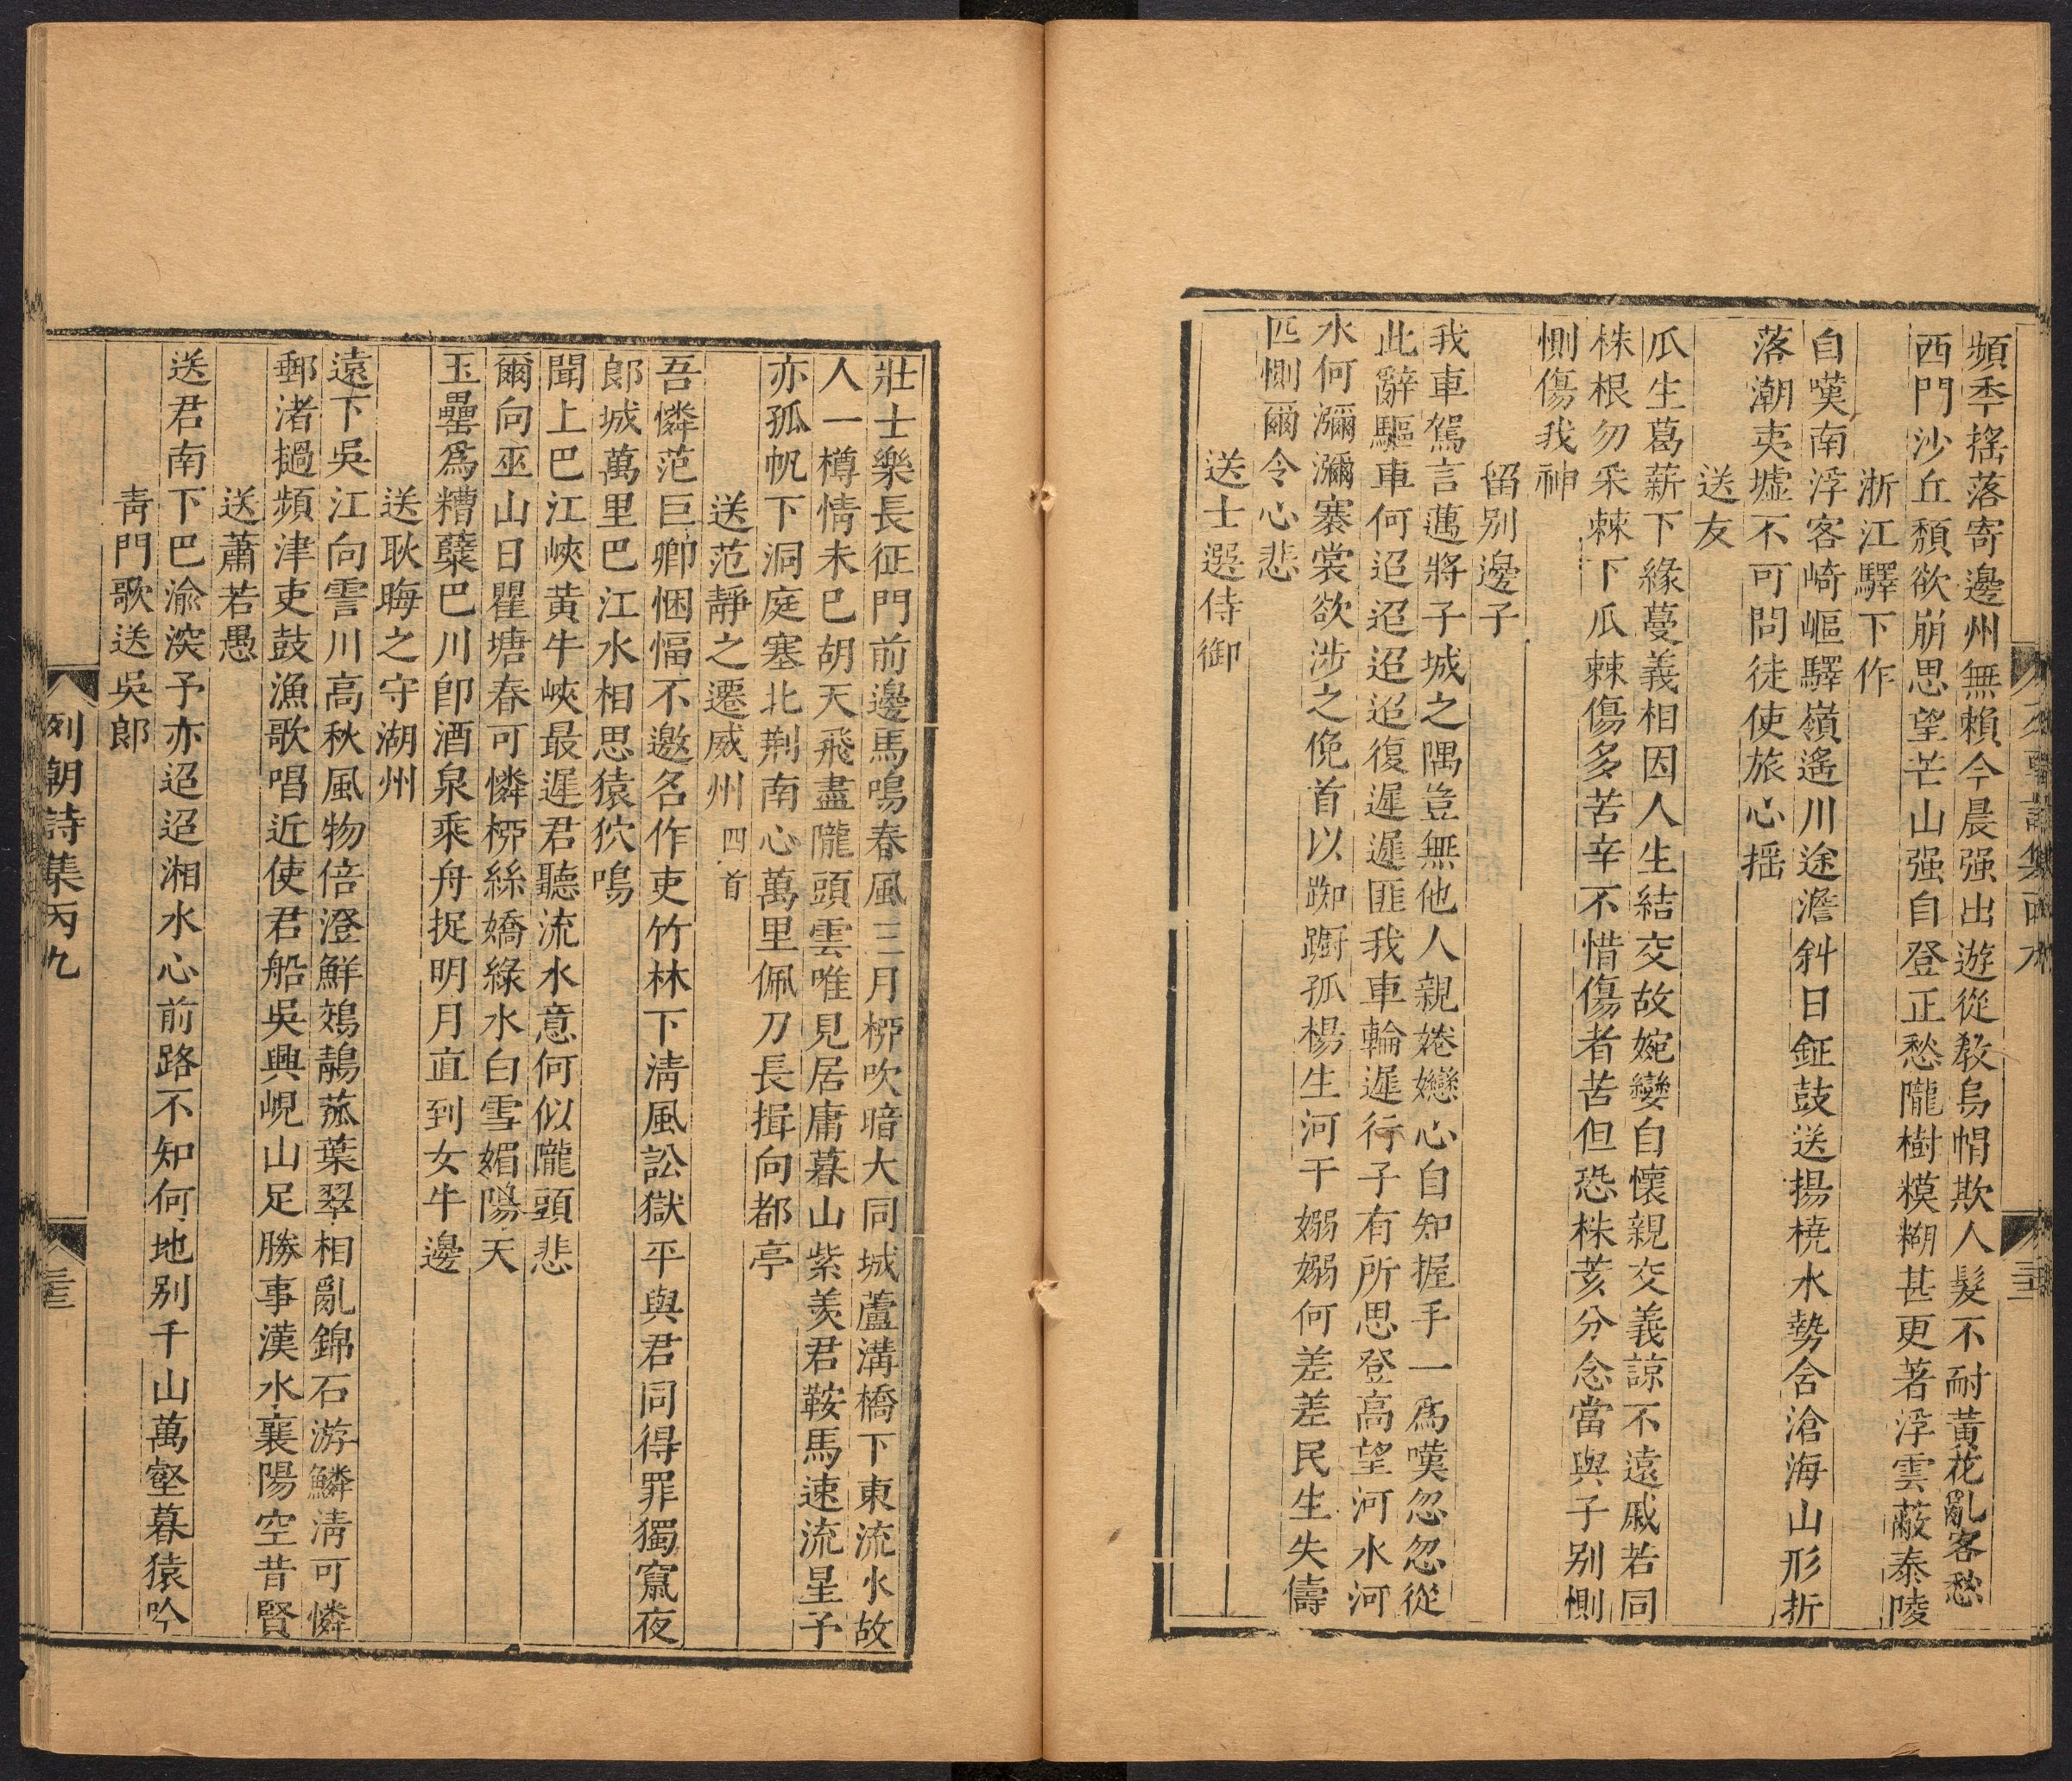 頻秊揺落寄邊州無賴今晨强出遊從教烏帽欺人髮不耐黃花亂客愁
西門沙丘頹欲崩思望芒山强自登正愁隴樹糢糊甚更著浮雲蔽泰陵
浙江驛下作
自嘆南浮客崎嶇驛嶺遙川途澹斜日鉦鼓送揚橈水勢含滄海山形折
落潮夷墟不可問徒使旅心揺
送友
瓜生葛薪下緣蔓義相因人生結交故婉孌自懷親交義諒不遠戚若同
株根勿采棘下瓜棘傷多苦辛不惜傷者苦但恐株荄分念當與子别惻
惻傷我神
留别邊子
我車駕言邁將子城之隅豈無他人親婘戀心自知握手一爲嘆忽忽從
此辭驅車何迢迢迢迢復遲遲匪我車輪遲行子有所思登高望河水河
水何瀰瀰褰裳欲涉之俛首以踟蹰孤楊生河干嫋嫋何差差民生失儔
匹惻爾令心悲
送士選侍御
壯士樂長征門前邊馬鳴春風三月栁吹暗大同城蘆溝橋下東流水故
人一樽情未巳胡天飛盡隴頭雲唯見居庸暮山紫羨君鞍馬速流星予
亦孤帆下洞庭塞北荆南心萬里佩刀長揖向都亭
送范靜之遷威州 四首
吾憐范巨卿悃愊不邀名作吏竹林下淸風訟獄平與君同得罪獨竄夜
郎城萬里巴江水相思猿狖鳴
聞上巴江峽黃牛峽最遲君聽流水意何似隴頭悲
爾向巫山日瞿塘春可憐栁絲嬌綠水白雪媚陽天
玉罍爲糟蘗巴川卽酒泉乘舟捉明月直到女牛邊
送耿晦之守湖州
遠下吳江向霅川高秋風物倍澄鮮鵁鶄菰葉翠相亂錦石游鱗淸可憐
郵渚撾頻津吏鼓漁歌唱近使君船吳興峴山足勝事漢水襄陽空昔賢
送蕭若愚
送君南下巴渝深予亦迢迢湘水心前路不知何地别千山萬壑暮猿吟
靑門歌送吳郎
列朝詩集丙九